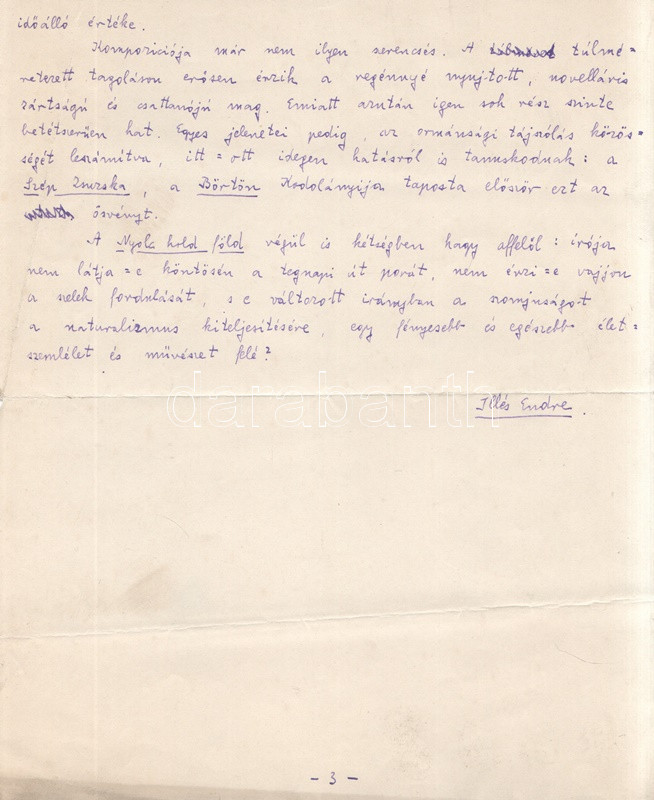 időálló értéke.
Kompoziciója már nem ilyen szerencsés. A túlmé=
retezett tagoláson erősen érzik a regénnyé nyujtott, novelláris
zártságú és csattanójú mag. Emiatt azután igen sok rész szinte
betétszerűen hat. Egyes jelenetei pedig, az ormánsági tájszólás közös=
ségét leszámítva, itt=ott idegen hatásról is tanuskodnak: a
Szép Zsuzska, a Börtön Kodolányija taposta először ezt az
ösvényt.
A Nyolc hold föld végül is kétségben hagy affelől: írója
nem látja=e köntösén a tegnapi út porát, nem érzi=e vajjon
a szelek fordulását, s e változott irányban a szomjuságot
a naturalizmus kiteljesítésére, egy fényesebb és egészebb élet=
szemlélet és művészet felé?
darabanth
Illés Endre.
- 3 -